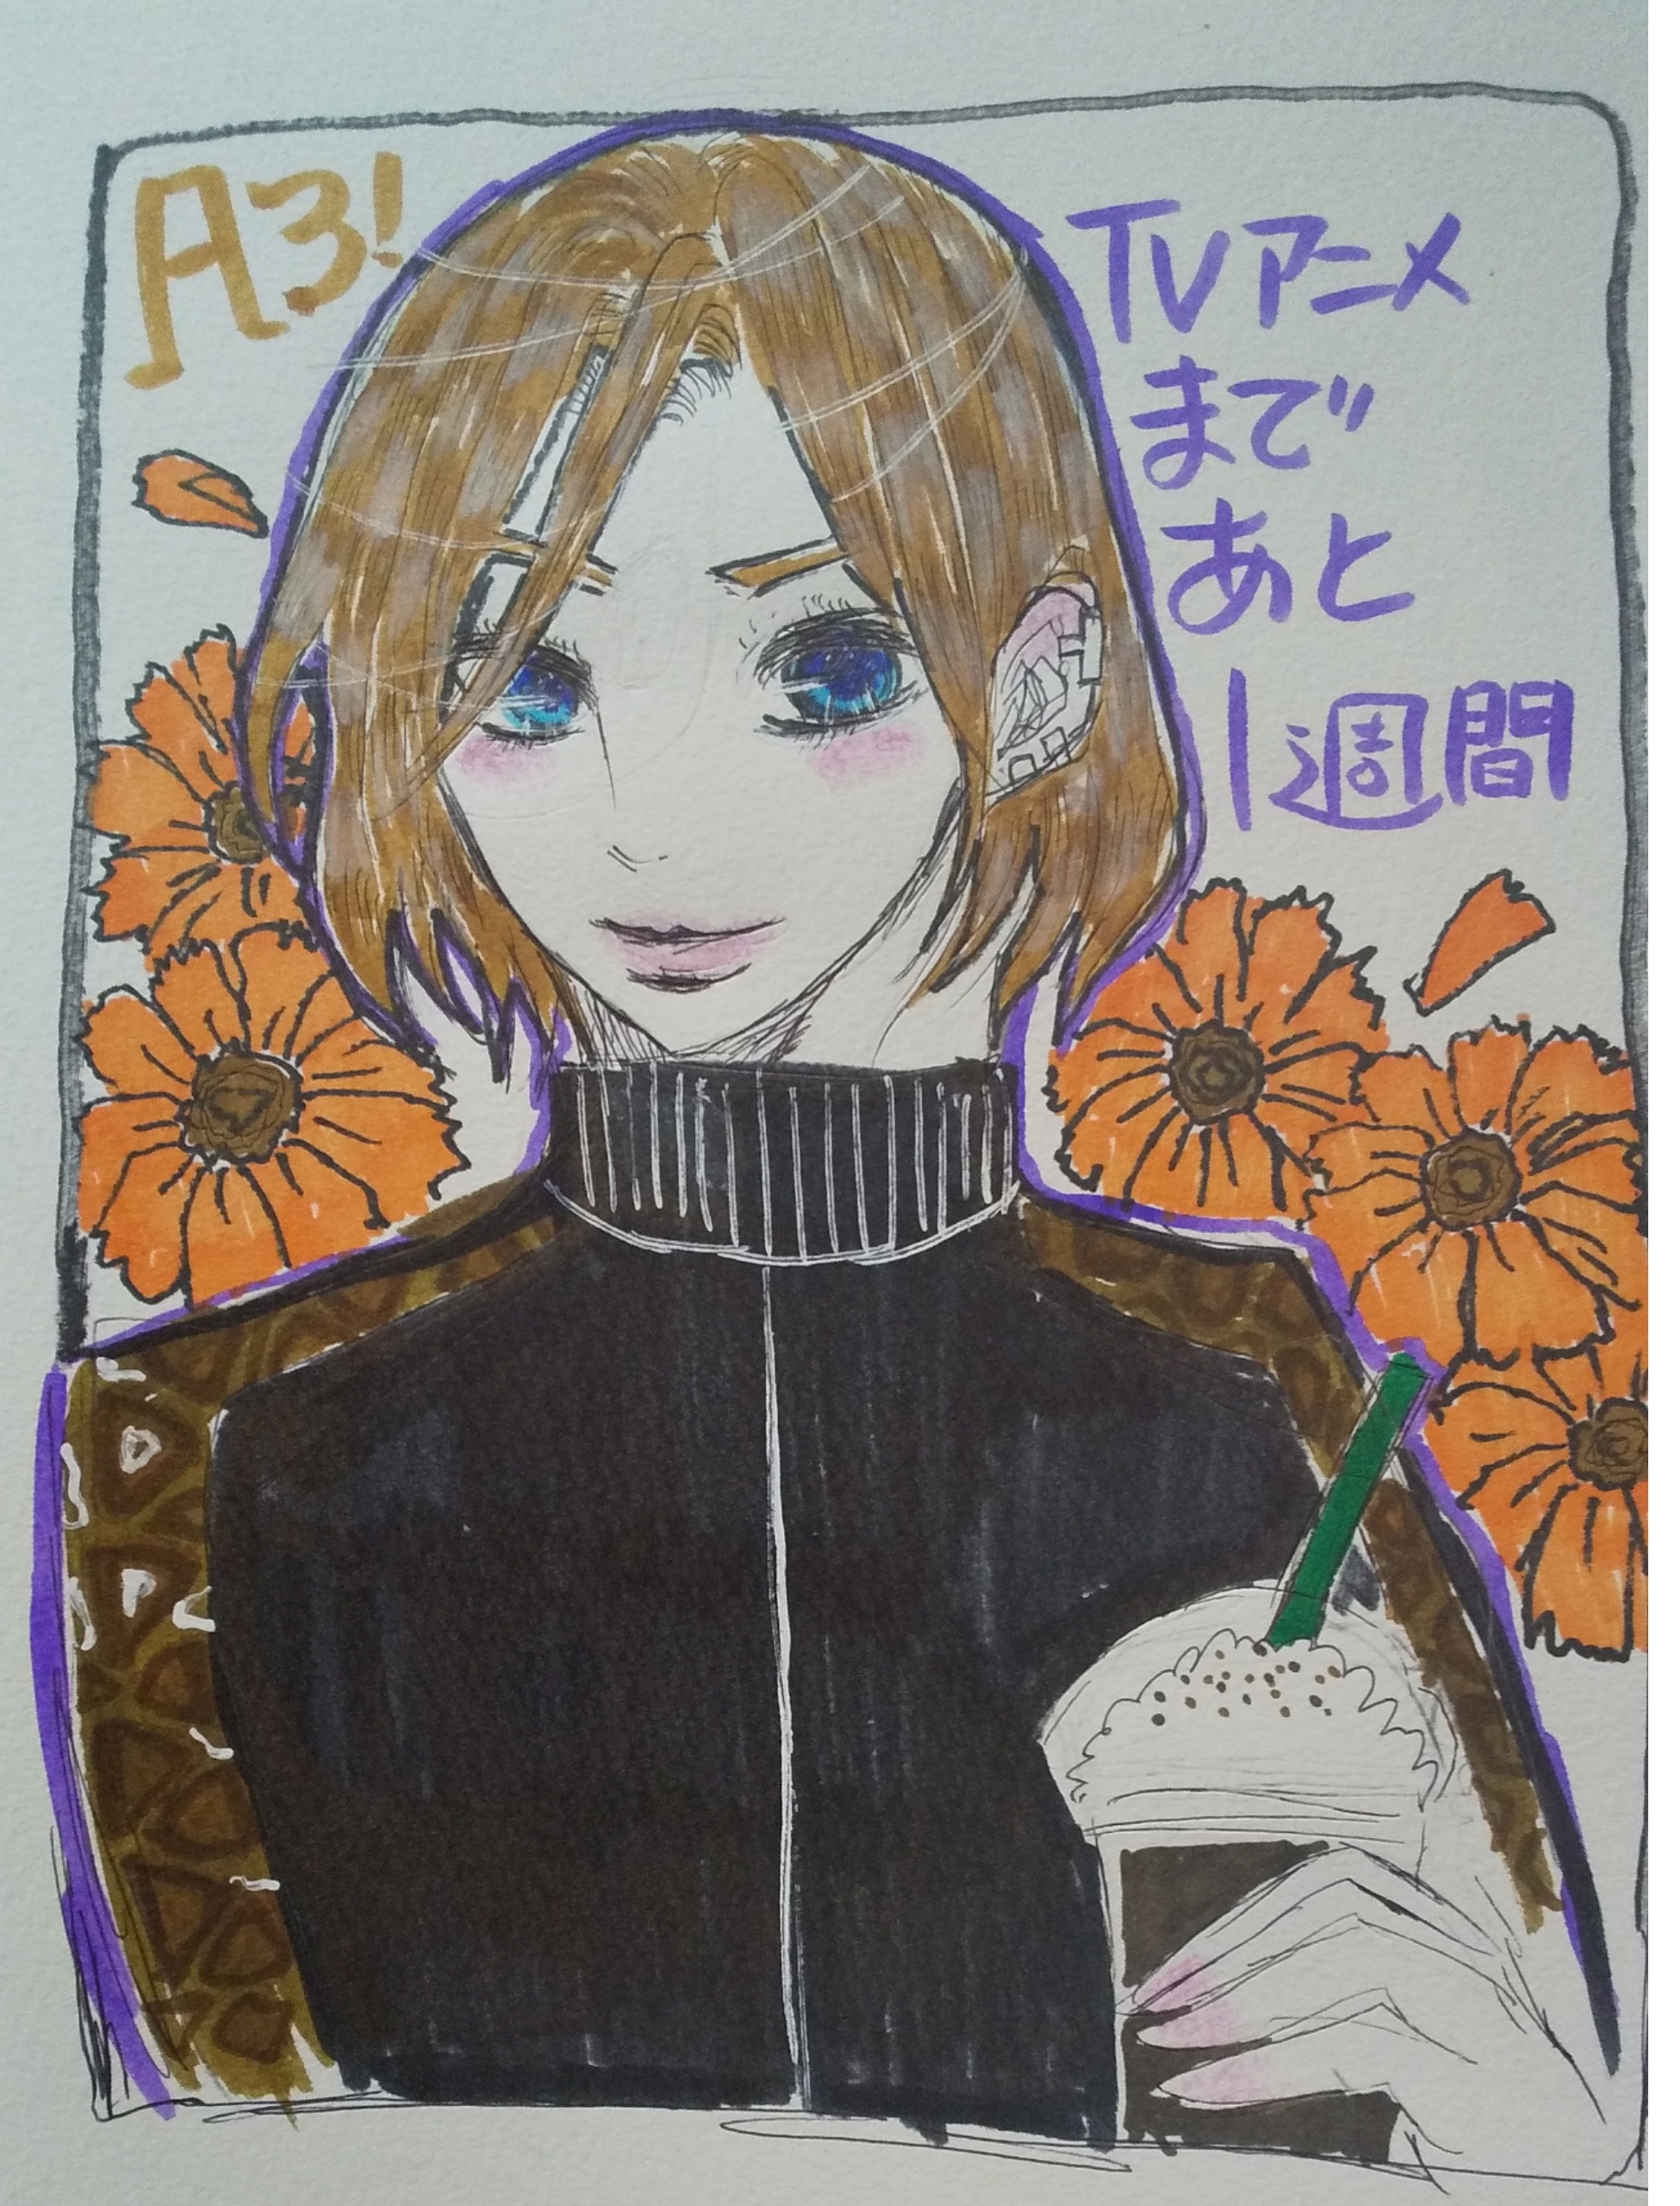 A3!
TVアニメ
まで
あと
1週間